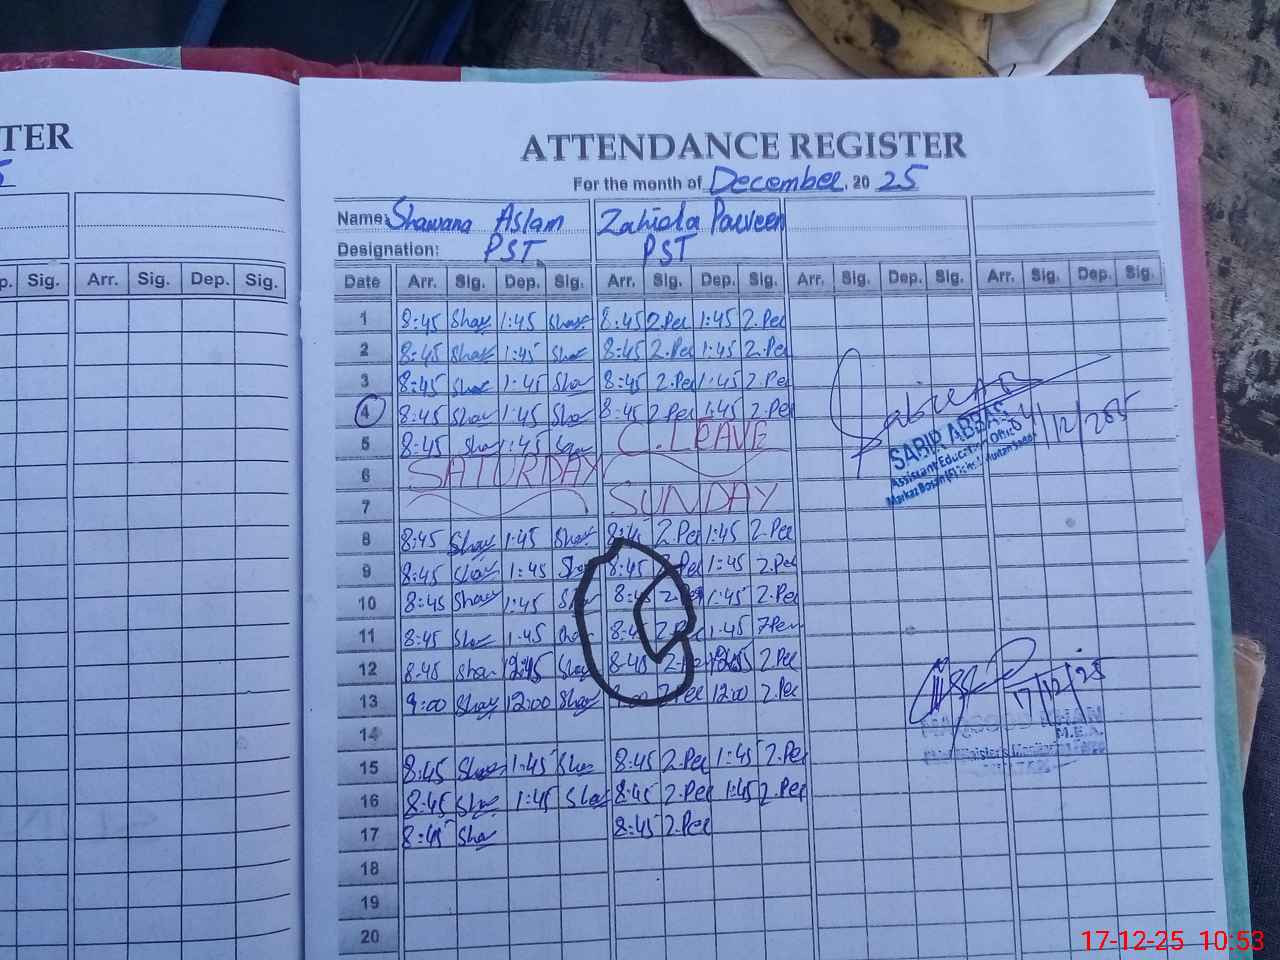 TER
5
ATTENDANCE REGISTER
For the month of December, 20 25
Name: Shawana Aslam Zahida Parveen
Designation: PST PST
p. Sig. Arr. Sig. Dep. Sig.
Date Arr. Sig. Dep. Sig. Arr. Sig. Dep. Sig. Arr. Sig. Dep. Sig. Arr. Sig. Dep. Sig.
1 8:45 Shaw 1:45 Shaw 8:45 Z.Per 1:45 Z.Per
2 8:45 Shaw 1:45 Sha 8:45 Z.Per 1:45 Z.Per
3 8:45 Sha 1:45 Sha 8:45 Z.Per 1:45 Z.Per
4 8:45 Sha 1:45 Sha 8:45 Z.Per 1:45 Z.Per
5 8:45 Sha 1:45 Sha C.LEAVE
6 SATURDAY
7 SUNDAY
8 8:45 Shaw 1:45 Shaw 8:45 Z.Per 1:45 Z.Per
9 8:45 Shaw 1:45 Sha 8:45 Z.Per 1:45 Z.Per
10 8:45 Shaw 1:45 Sha 8:45 1:45 Z.Per
11 8:45 Sha 1:45 Sha 8:45 Z.Per 1:45 Z.Per
12 8:45 Sha 12:45 Sha 8:45 Z.Per Z.Per
13 9:00 Shaw 12:00 Shaw 9:00 Z.Per 12:00 Z.Per
14
15 8:45 Shaw 1:45 Sha 8:45 Z.Per 1:45 Z.Per
16 8:45 Sha 1:45 Sha 8:45 Z.Per 1:45 Z.Per
17 8:45 Sha 8:45 Z.Per
18
19
20
SABIR ABBAS
Assistant Education Officer
Markaz
4/12/2025
17/12/25
M.E.A.
17-12-25 10:53